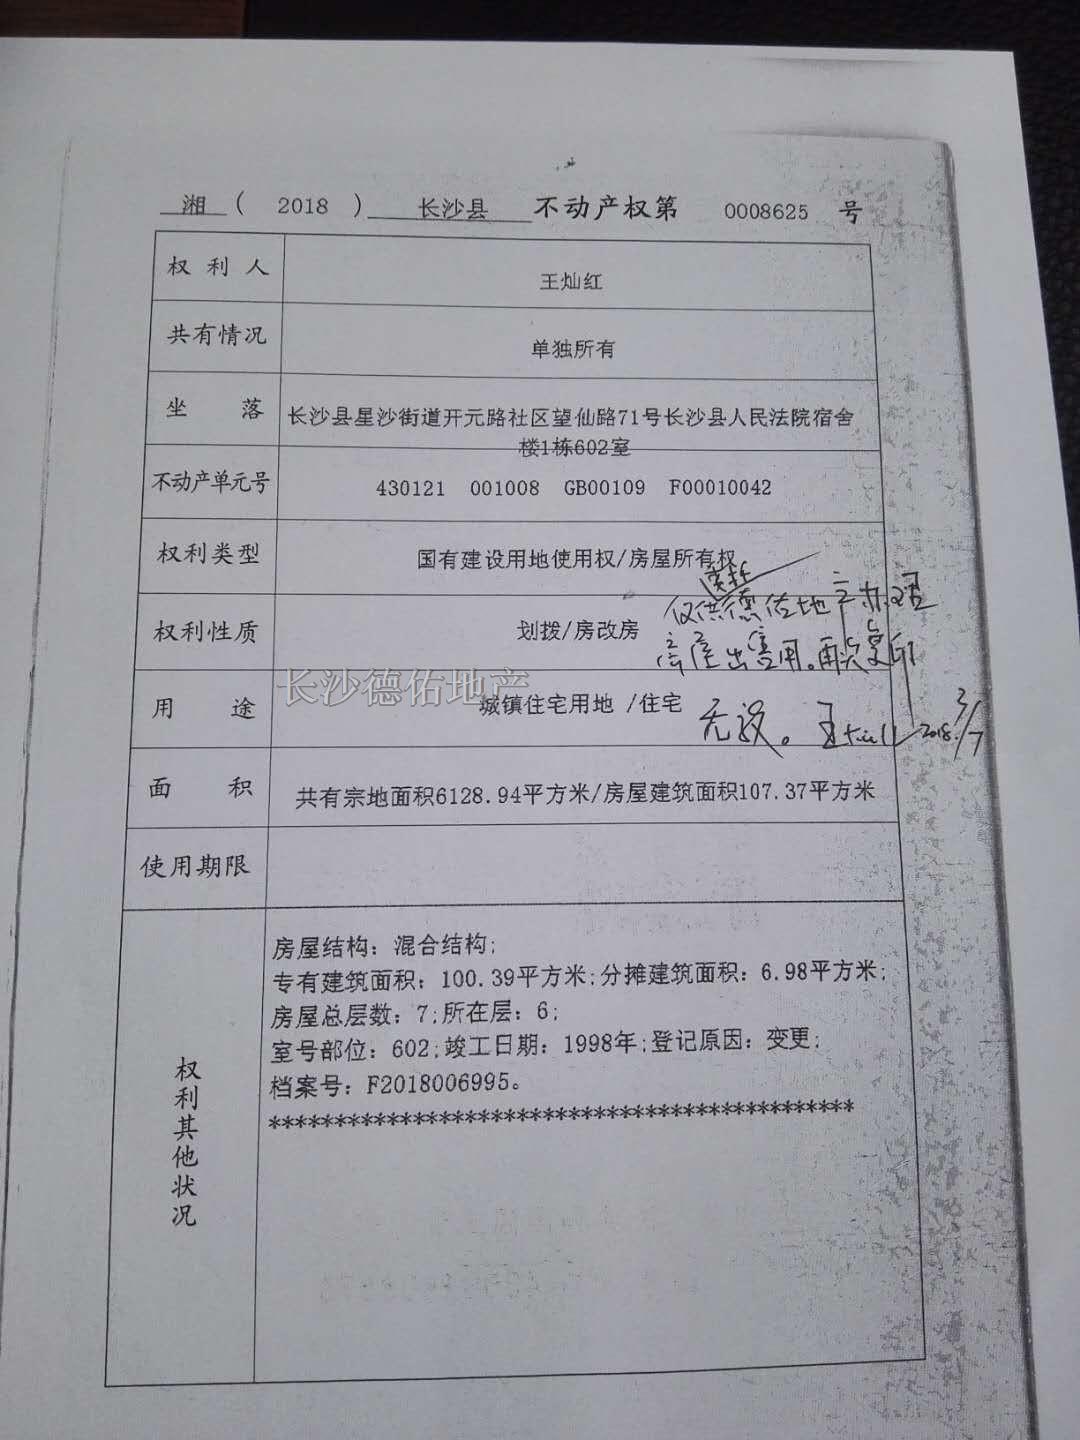 湘 ( 2018 ) 长沙县 不动产权第 0008625 号
权利人 王灿红
共有情况 单独所有
坐落 长沙县星沙街道开元路社区望仙路71号长沙县人民法院宿舍
楼1栋602室
不动产单元号 430121 001008 GB00109 F00010042
权利类型 国有建设用地使用权/房屋所有权
权利性质 划拨/房改房
仅供德佑地产办理
房屋出售用。再次复印
无效。
2018.3/7
长沙德佑地产
用途 城镇住宅用地 /住宅
面积 共有宗地面积6128.94平方米/房屋建筑面积107.37平方米
使用期限
权利其他状况
房屋结构：混合结构;
专有建筑面积：100.39平方米;分摊建筑面积：6.98平方米;
房屋总层数：7;所在层：6;
室号部位：602;竣工日期：1998年;登记原因：变更;
档案号：F2018006995。
*********************************************